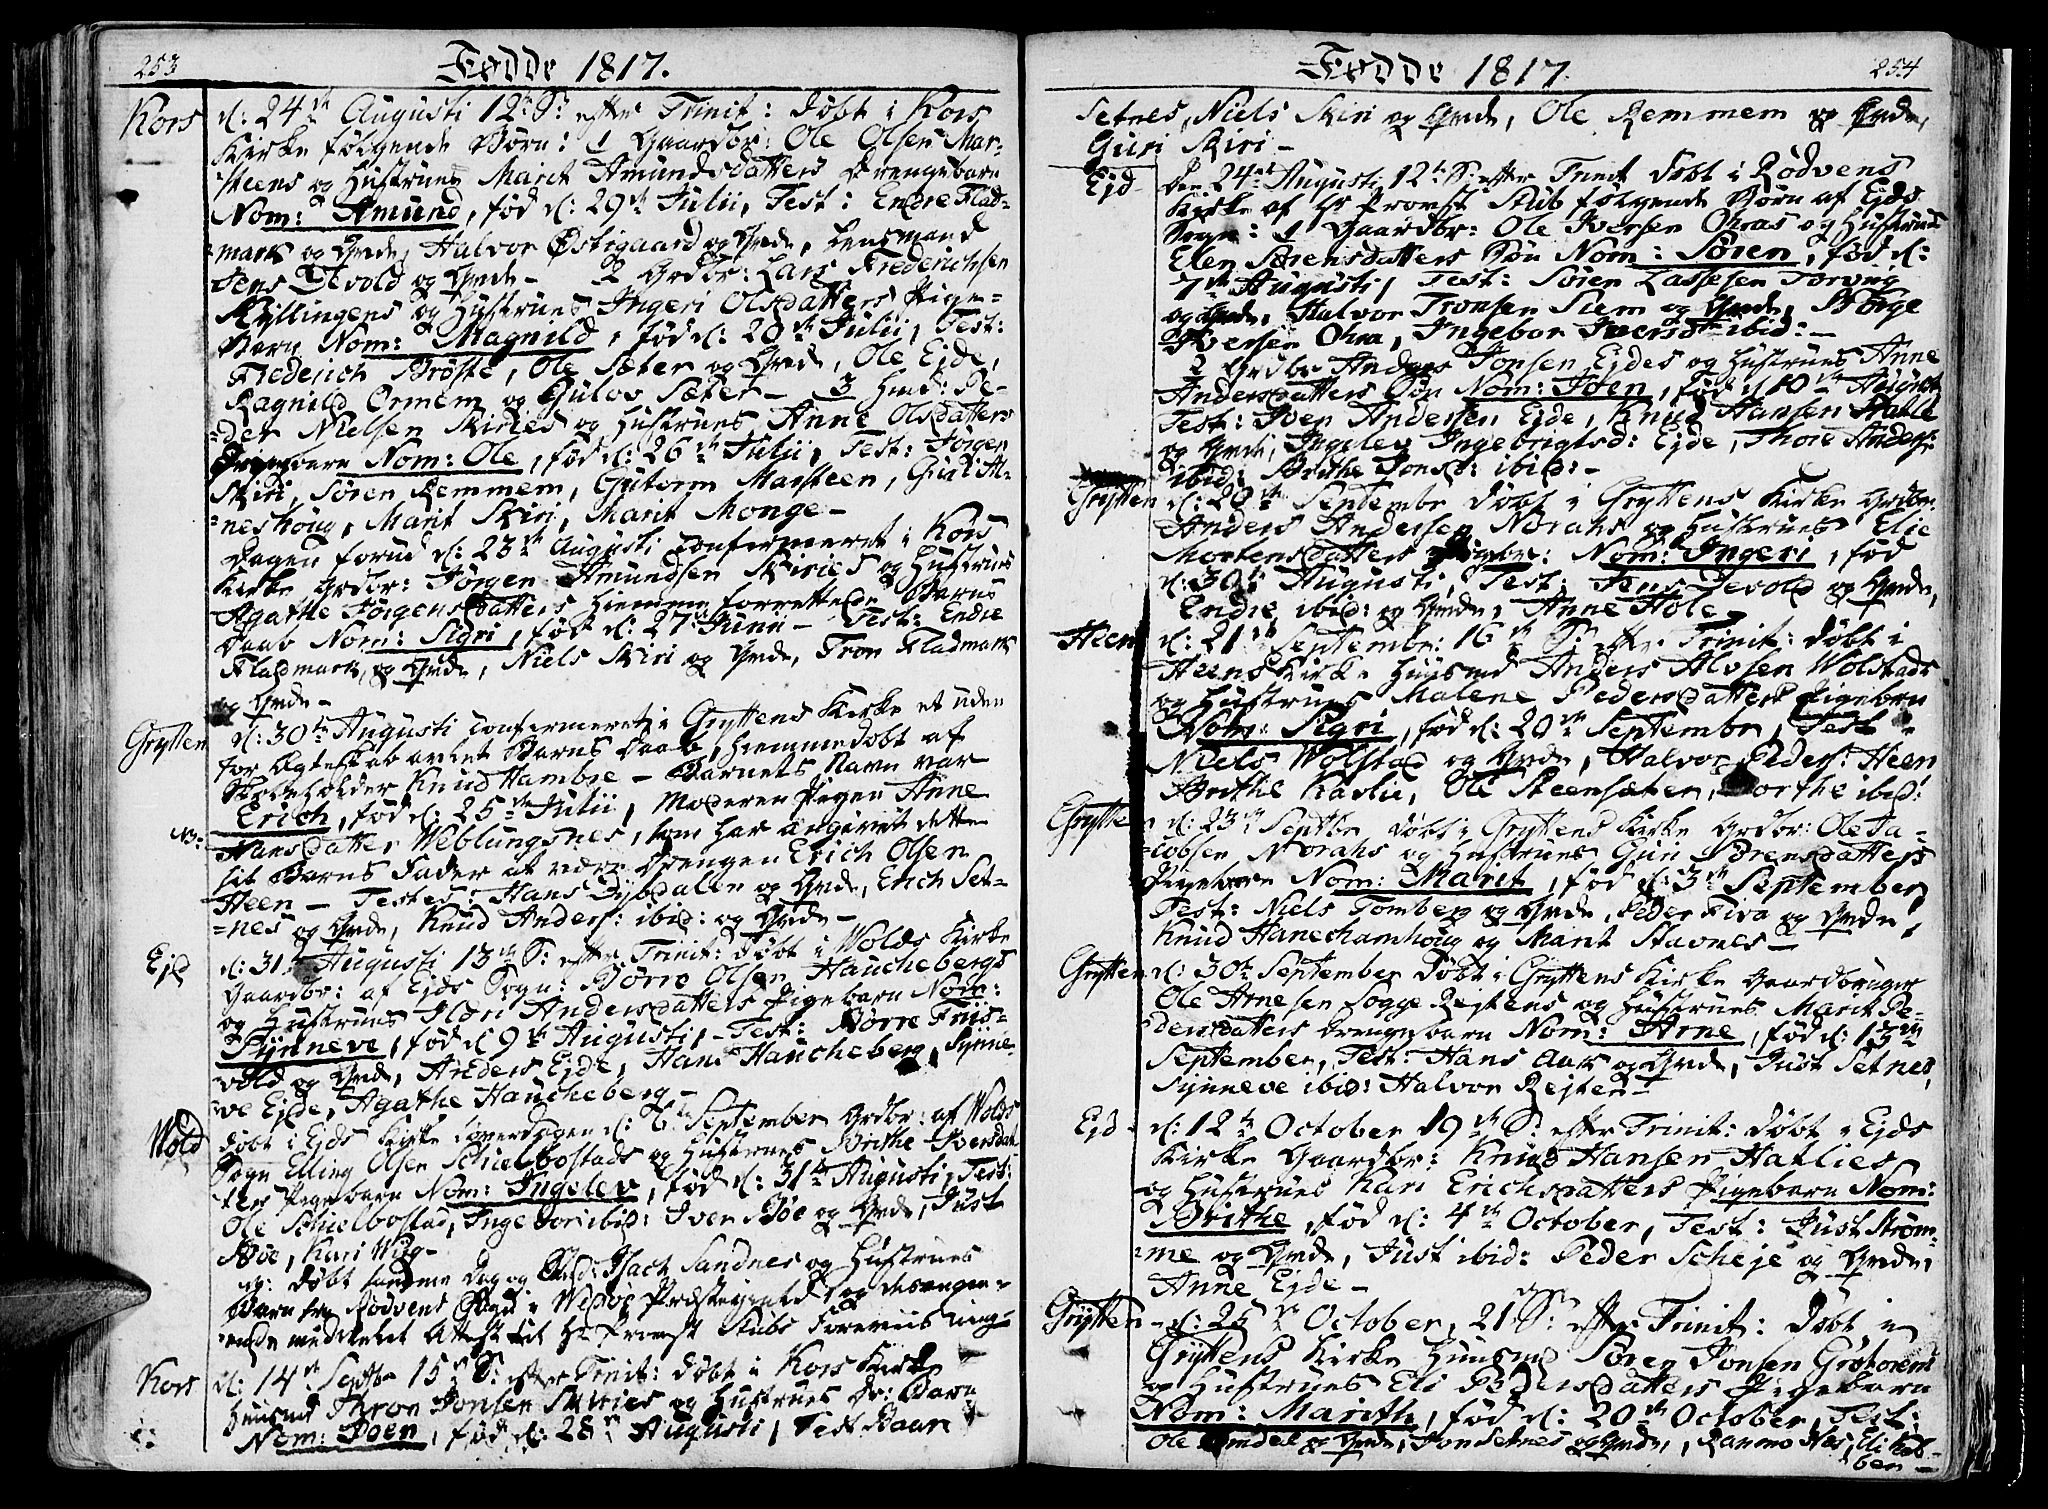 253
Fødde 1817.
Kors
d: 24de Augusti 12te S: efter Trinit: døbt i Kors
Kirke følgende Børn: 1 Gaardbr: Ole Olsen Mar-
steens og Hustrues Marit Amundsdatters Drengebarn
Nom: Amund, fød d: 29de Julii, Test: Endre Flad-
mark og Qvde, Halvor Østigaard og Qvde, Lensmand
Jens Devold og Qvde - 2 Grdbr: Lars Frederichsen
Kyllingens og Hustrues Ingeri Olsdatters Pige-
Barn Nom: Magnild, fød d: 20de Julii, Test:
Frederich Brøste, Ole Sæter og Qvde, Ole Ejde,
Ragnild Ormem og Gulov Sæter - 3 Hmd: Pe-
=der Nielsen Skiries og Hustrues Anne Olsdatters
Drengebarn Nom: Ole, fød d: 26de Julii, Test: Jørgen
Skiri, Søren Remmem, Gutorm Marsteen, Guri Al-
=neshoug, Marit Skiri, Marit Monge -
Dagen forud d: 23de Augusti confirmeret i Kors
Kirke Grdbr: Jørgen Amundsen Skiries og Hustrues
Agathe Jørgensdatters hiemme forrettede Barns
Daab Nom: Sigri, fød d: 27de Junii - Test: Endre
Fladmark og Qvde, Niels Skiri og Qvde, Tron Fladmark
og Qvde -
Grytten
d: 30te Augusti confermeret i Gryttens Kirke et uden
for Ægteskab avlet Barns Daab, hiemmedøbt af
Skoleholder Knud Hambre - Barnets Navn var
Erich, fød d: 25de Julii, Moderen Pigen Anne
NB:
Hansdatter Weblungsnes, som har angivet dette
sit Barns Fader at være Drengen Erich Olsen
Heen - Testes: Hans Dybdalen og Qvde, Erich Set-
=nes og Qvde, Knud Anders: ibid: og Qvde -
Ejd
d: 31te Augusti 13de S: efter Trinit: døbt i Wolds Kirke
Gaardbr: af Ejds Sogn: Børre Olsen Hauchebergs
og Hustrues Ildri Andersdatters Pigebarn Nom:
Synneve, fød d 9de Augusti, - Test: Børre Friis-
vold og Qvde, Anders Ejde, Hans Haucheberg, Synne-
ve Ejde, Agathe Haucheberg -
Wold
døbt i Ejds Kirke Løverdagen d: 6te September Grdbr: af Wolds
Sogn Elling Olsen Schielbostads og Hustrues Brithe Iversdat-
ters Pigebarn Nom: Ingelev, fød d: 31te Augusti, Test:
Ole Schielbostad, Ingebor ibid: Iver Bøe og Qvde, Just
Bøe, Kari Wiig -
døbt samme Dag og Isach Sandnes og Hustrues
Barn fra Rødvens Sogn i Præstegield
meddeelet Attest til Hr Provst Stubs
Kors
d: 14de Septbr 15de S: efter Trinit: døbt i Kors Kirke
Huusmd Thron Jonsen Skiries og Hustrues Dr: Barn
Nom: Joen, fød d: 28de Augusti, Test
254
Fødde 1817.
Setnes, Niels Skiri og Qvde, Ole Remmem og Qvde,
Guri Skiri -
Ejd
Den 24de Augusti 12te S: efter Trinit døbt i Rødvens
Kirke af Hr Provst Stub følgende Børn af Ejds
Sogn: 1 Gaardbr: Ole Iversen Ohras og Hustrues
Elen Sørensdatters Søn Nom: Søren, fød d:
7de Augusti, Test: Søren Lassesen Torvug
og Qvde, Halvor Tronsen Siem og Qvde, Børge
Iversen Ohra, Ingebor Iversd: ibid: -
2 Grdbr Anders Jonsen Ejdes og Hustrues Anne
Andersdatters Søn Nom: Joen, fød d 10de August
Test: Iver Andersen Ejde, Knud Hansen Hatle
og Qvde, Ingelev Ingebrigtsd: Ejde, Thore Anders:
ibid: Brithe Jonsd: ibid: -
Grytten
d: 20de Septembr døbt i Gryttens Kirke Grdbr:
Anders Andersen Norahs og Hustrues Elie
Mortensdatters Nom: Ingeri, fød
d: 30te Augusti, Test: Jens Devold og Qvde,
Endre ibid: og Qvde, Anne Hole
Heen
d: 21de Septembr: 16de S: efter Trinit: døbt i
Heens Kirke Huusmd Anders Alvsen Wolstads
og Hustrues Malene Pedersdatters Pigebarn
Nom: Sigri, fød d: 20de Septembr, Test
Niels Wolstad og Qvde, Halvor Peders: Heen
Brithe Kaslie, Ole Steensæter, Dorthe ibid:
Grytten
d: 23de Septbr døbt i Gryttens Kirke Grdbr: Ole Ja-
=cobsen Norahs og Hustrues Guri Sørensdatters
Pigebarn Nom: Marit, fød d: 3de September
Test: Niels Tomberg og Qvde, Peder Fiva og Qvde,
Knud Hanekamhoug og Marit Stavnes -
Grytten
d: 30te September døbt i Gryttens Kirke Gaardbruger
Ole Arnesen Sogge Rejtens og Hustrues Marit Pe-
dersdatters Drengebarn Nom: Arne, fød d: 13de
September, Test: Hans Aak og Qvde, Just Setnes,
Synneve ibid: Halvor Rejten -
Ejd
d: 12te October 19de S: efter Trinit: døbt i Ejds
Kirke Gaardbr: Knud Hansen Hatlies
og Hustrues Kari Erichsdatters Pigebarn Nom:
Brithe, fød d: 4de October, Test: Just Strøm-
=me og Qvde, Just ibid: Peder Scheje og Qvde,
Anne Ejde -
Grytten
d: 25de October, 21 S: efter Trinit: døbt i
Gryttens Kirke Huusmd Søren Jonsen Grøtørems
og Hustrues Eli Pedersdatters Pigebarn
Nom: Marith, fød d: 20de October, Test:
Ole og Qvde, Jon Setnes og Qvde, Næs, Eli